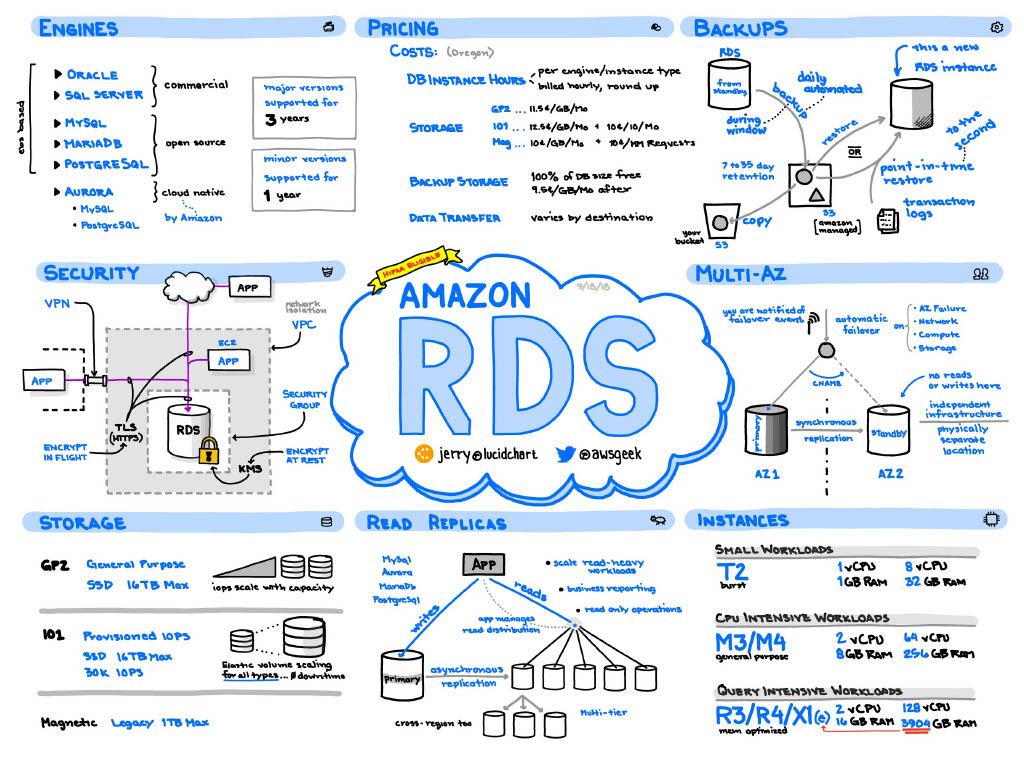 ENGINES
ORACLE
SQL SERVER
commercial
MYSQL
MARIADB
POSTGRESQL
open source
ebs based
AURORA
cloud native
• MySQL
• PostgreSQL
by Amazon
major versions
supported for
3 years
minor versions
supported for
1 year
PRICING
COSTS: (Oregon)
DB INSTANCE HOURS
per engine/instance type
billed hourly, round up
STORAGE
GP2 ... 11.5¢/GB/Mo
IO1 ... 12.5¢/GB/Mo + 10¢/IO/Mo
Mag ... 10¢/GB/Mo + 10¢/MM Requests
BACKUP STORAGE
100% of DB size free
9.5¢/GB/Mo after
DATA TRANSFER
varies by destination
BACKUPS
RDS
from
standby
daily
automated
backup
during
window
this a new
RDS instance
restore
OR
to the
second
point-in-time
restore
7 to 35 day
retention
S3
[amazon
managed]
transaction
logs
copy
your
bucket
S3
SECURITY
VPN
APP
network
isolation
VPC
EC2
APP
APP
SECURITY
GROUP
RDS
TLS
(HTTPS)
ENCRYPT
IN FLIGHT
KMS
ENCRYPT
AT REST
HIPAA ELIGIBLE
9/18/18
AMAZON
RDS
jerry@lucidchart
@awsgeek
MULTI-AZ
you are notified of
failover event
automatic
failover
on
• AZ Failure
• Network
• Compute
• Storage
CNAME
no reads
or writes here
primary
synchronous
replication
standby
independent
infrastructure
physically
separate
location
AZ1
AZ2
STORAGE
GP2 General Purpose
SSD 16TB Max
iops scale with capacity
IO1 Provisioned IOPS
SSD 16TB Max
30K IOPS
Elastic volume scaling
for all types... Ø downtime
Magnetic Legacy 1TB Max
READ REPLICAS
MySql
Aurora
MariaDb
PostgreSql
App
writes
reads
app manages
read distribution
• scale read-heavy
workloads
• business reporting
• read only operations
primary
asynchronous
replication
cross-region too
Multi-tier
INSTANCES
SMALL WORKLOADS
T2
burst
1 vCPU 8 vCPU
1 GB RAM 32 GB RAM
CPU INTENSIVE WORKLOADS
M3/M4
general purpose
2 vCPU 64 vCPU
8 GB RAM 256 GB RAM
QUERY INTENSIVE WORKLOADS
R3/R4/X1(e)
mem optimized
2 vCPU 128 vCPU
16 GB RAM 3904 GB RAM